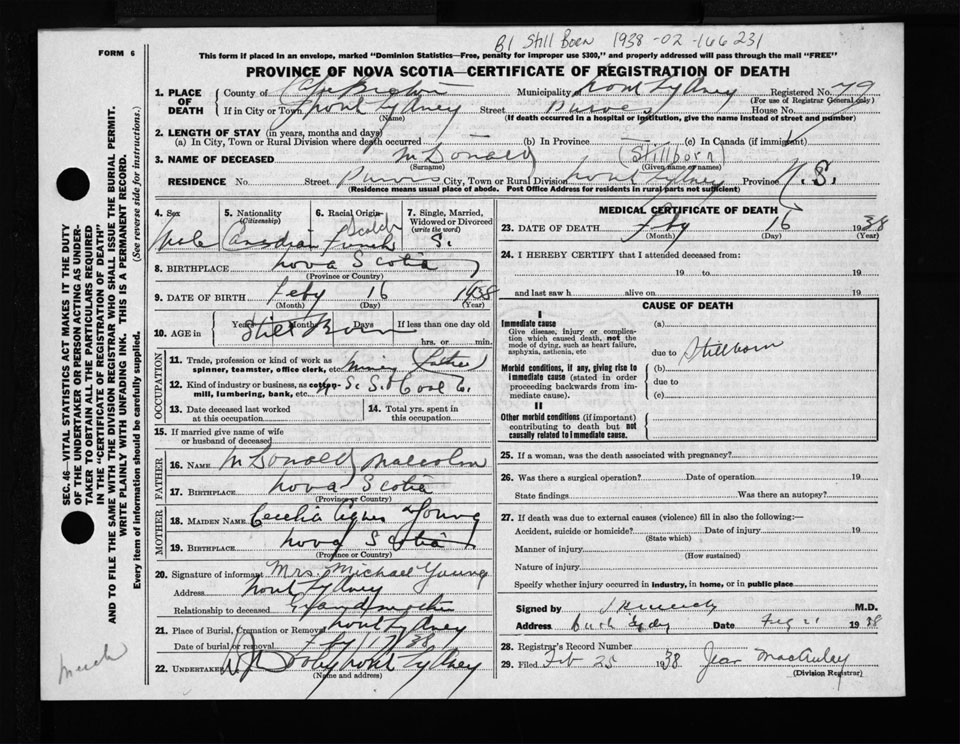 B1 Still Born 1938-02-166231
FORM 6
This form if placed in an envelope, marked "Dominion Statistics—Free, penalty for improper use $300," and properly addressed will pass through the mail "FREE"
PROVINCE OF NOVA SCOTIA—CERTIFICATE OF REGISTRATION OF DEATH
1. PLACE OF DEATH County of Cape Breton Municipality North Sydney Registered No. 79
(For use of Registrar General only)
If in City or Town North Sydney Street House No.
(Name) (If death occurred in a hospital or institution, give the name instead of street and number)
2. LENGTH OF STAY (in years, months and days)
(a) In City, Town or Rural Division where death occurred (b) In Province (c) In Canada (if immigrant)
3. NAME OF DECEASED McDonald (Stillborn)
(Surname) (Given name or names)
RESIDENCE No. Street Purves City, Town or Rural Division North Sydney Province N. S.
(Residence means usual place of abode. Post Office Address for residents in rural parts not sufficient)
4. Sex 5. Nationality (Citizenship) 6. Racial Origin 7. Single, Married, Widowed or Divorced (write the word)
Male Canadian Scotch French S.
8. BIRTHPLACE Nova Scotia
(Province or Country)
9. DATE OF BIRTH Feby 16 1938
(Month) (Day) (Year)
10. AGE in Years Months Days If less than one day old
Still Born hrs. or min.
OCCUPATION
11. Trade, profession or kind of work as spinner, teamster, office clerk, etc. Mining Father
12. Kind of industry or business, as cotton-mill, lumbering, bank, etc. N. S. S. & Coal Co.
13. Date deceased last worked at this occupation
14. Total yrs. spent in this occupation
15. If married give name of wife or husband of deceased
FATHER
16. NAME McDonald, Malcolm
17. BIRTHPLACE Nova Scotia
(Province or Country)
MOTHER
18. MAIDEN NAME Cecelia Agnes Young
19. BIRTHPLACE Nova Scotia
(Province or Country)
20. Signature of informant Mrs. Michael Young
Address North Sydney
Relationship to deceased Grandmother
21. Place of Burial, Cremation or Removal North Sydney
Date of burial or removal Feby 17/38
22. UNDERTAKER North Sydney
(Name and address)
MEDICAL CERTIFICATE OF DEATH
23. DATE OF DEATH Feby 16 1938
(Month) (Day) (Year)
24. I HEREBY CERTIFY that I attended deceased from:
19 to 19
and last saw h alive on 19
CAUSE OF DEATH
I
Immediate cause (a)
Give disease, injury or complication which caused death, not the mode of dying, such as heart failure, asphyxia, asthenia, etc
due to Stillborn
Morbid conditions, if any, giving rise to immediate cause (stated in order proceeding backwards from immediate cause). (b)
due to
(c)
II
Other morbid conditions (if important) contributing to death but not causally related to immediate cause.
25. If a woman, was the death associated with pregnancy?
26. Was there a surgical operation? Date of operation 19
State findings Was there an autopsy?
27. If death was due to external causes (violence) fill in also the following:—
Accident, suicide or homicide? Date of injury 19
(State which)
Manner of injury
(How sustained)
Nature of injury
Specify whether injury occurred in industry, in home, or in public place
Signed by M.D.
Address Date Feb 21 1938
28. Registrar's Record Number
29. Filed Feb 25 1938 Jean MacAuley
(Division Registrar)
SEC. 46—VITAL STATISTICS ACT MAKES IT THE DUTY
OF THE UNDERTAKER OR PERSON ACTING AS UNDER-
TAKER TO OBTAIN ALL THE PARTICULARS REQUIRED
IN THE "CERTIFICATE OF REGISTRATION OF DEATH"
AND TO FILE THE SAME WITH THE DIVISION REGISTRAR WHO SHALL ISSUE THE BURIAL PERMIT.
WRITE PLAINLY WITH UNFADING INK. THIS IS A PERMANENT RECORD.
Every item of information should be carefully supplied. (See reverse side for instructions.)